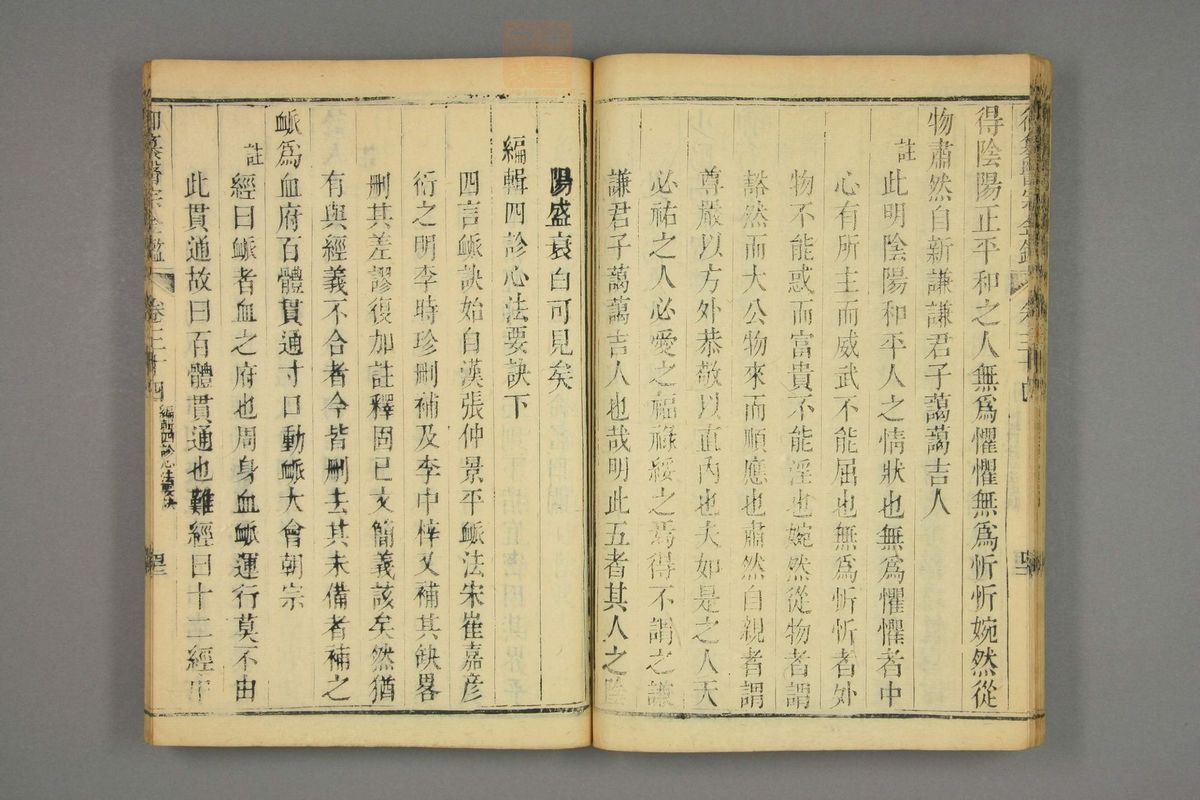 得陰陽正平和之人無爲懼懼無爲忻忻婉然從
物肅然自新謙謙君子藹藹吉人
註
此明陰陽和平人之情狀也無爲懼懼者中
心有所主而威武不能屈也無爲忻忻者外
物不能惑而富貴不能淫也婉然從物者謂
豁然而大公物來而順應也肅然自親者謂
尊嚴以方外恭敬以直內也夫如是之人天
必祐之人必愛之福祿綏之焉得不謂之謙
謙君子藹藹吉人也哉明此五者其人之陰
陽盛衰自可見矣
編輯四診心法要訣下
四言脈訣始自漢張仲景平脈法宋崔嘉彥
衍之明李時珍刪補及李中梓又補其缺畧
刪其差謬復加註釋固已文簡義該矣然猶
有與經義不合者今皆刪去其未備者補之
脈爲血府百體貫通寸口動脈大會朝宗
註
經曰脈者血之府也周身血脈運行莫不由
此貫通故曰百體貫通也難經曰十二經中
御纂醫宗金鑑
卷三十四
編輯四診心法要訣